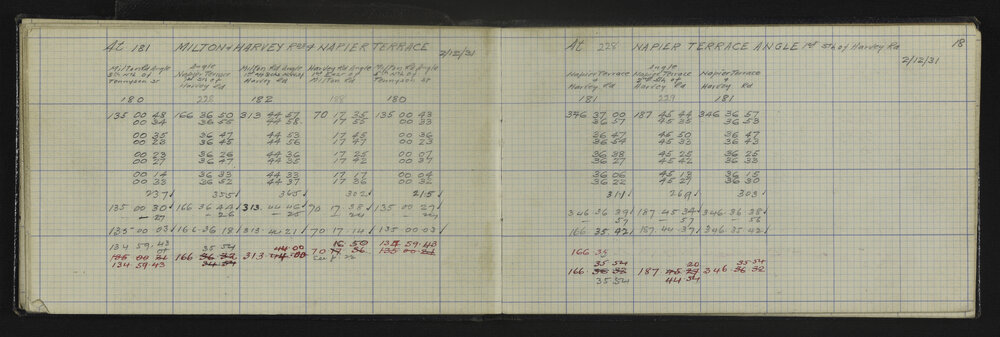 At 181 MILTON & HARVEY Rds & NAPIER TERRACE 2/12/31
Milton Rd Angle
5th Nth of
Tennyson St
180
Angle
Napier Terrace
1st Sth of
Harvey Rd
228
Milton Rd Angle
Harvey Rd
182
Harvey Rd Angle
1st East of
Milton Rd
188
Milton Rd Angle
5th Nth of
Tennyson St
180
135 00 48 166 36 50 313 44 57 70 17 35 135 00 43
00 34 36 55 44 58 17 55 00 33
00 35 36 47 44 53 17 45 00 36
00 22 36 45 44 56 17 47 00 23
00 23 36 26 44 36 17 25 00 07
00 27 36 47 44 35 17 42 00 37
00 14 36 33 44 33 17 17 00 04
00 33 36 52 44 37 17 36 00 32
237 355 365 302 215
135 00 30 166 36 44 313 44 46 70 17 38 135 00 27
135 00 03 166 36 18 313 44 21 70 17 14 135 00 03
134 59 43 35 54 44 00 16 50 134 59 43
166 313 70
134 59 43
At 228 NAPIER TERRACE ANGLE 1st Sth of Harvey Rd 18
2/12/31
Napier Terrace
&
Harvey Rd
181
Angle
Napier Terrace
2nd Sth of
Harvey Rd
229
Napier Terrace
&
Harvey Rd
181
346 37 00 187 45 44 346 36 57
36 57 45 35 36 53
36 47 45 50 36 47
36 54 45 33 36 43
36 38 45 25 36 25
36 27 45 42 36 33
36 06 45 13 36 15
36 22 45 27 36 30
311 269 303
346 36 39 187 45 34 346 36 38
57 57 56
166 35 42 187 44 37 346 35 42
166 35
35 54 20 35 54
166 187 346
35 54 44 34